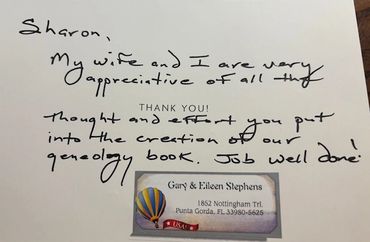 Sharon,
My wife and I are very
appreciative of all the
THANK YOU!
thought and effort you put
into the creation of our
geneology book. Job well done!
Gary & Eileen Stephens
1852 Nottingham Trl.
Punta Gorda, FL 33980-5625
USA